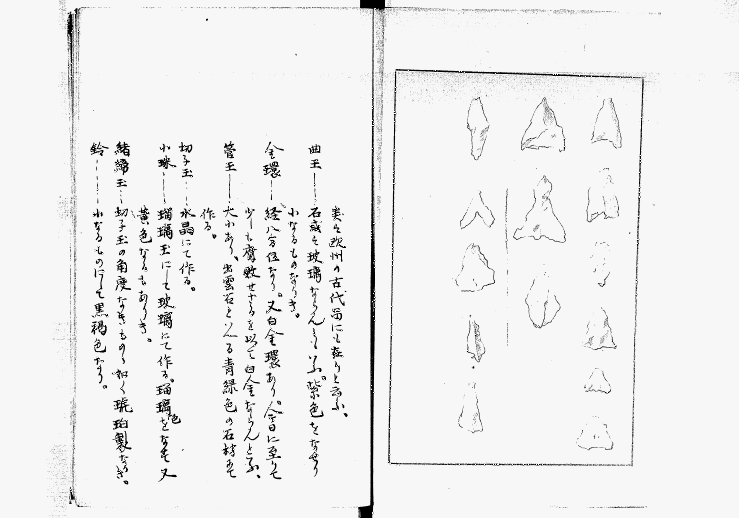 実は欧州の古代品にも在りと云ふ。
曲玉――石或は玻璃ならんとも云ふ。紫色をなせり
小なるものなりき。
金環――経八分位なり。又白金環あり。今日に至りて
少しも腐敗せざるを以て白金ならんと云ふ、
管玉――大小あり、出雲石と云へる青緑色の石材にて
作る。
切子玉――水晶にて作る。
小珠――瑠璃玉にて玻璃にて作る。瑠璃色をなす又
黄色なるもありき。
緒締玉――切子玉の角度なきものゝ如く琥珀製なりき。
鈴――小なるものにして黒褐色なり。